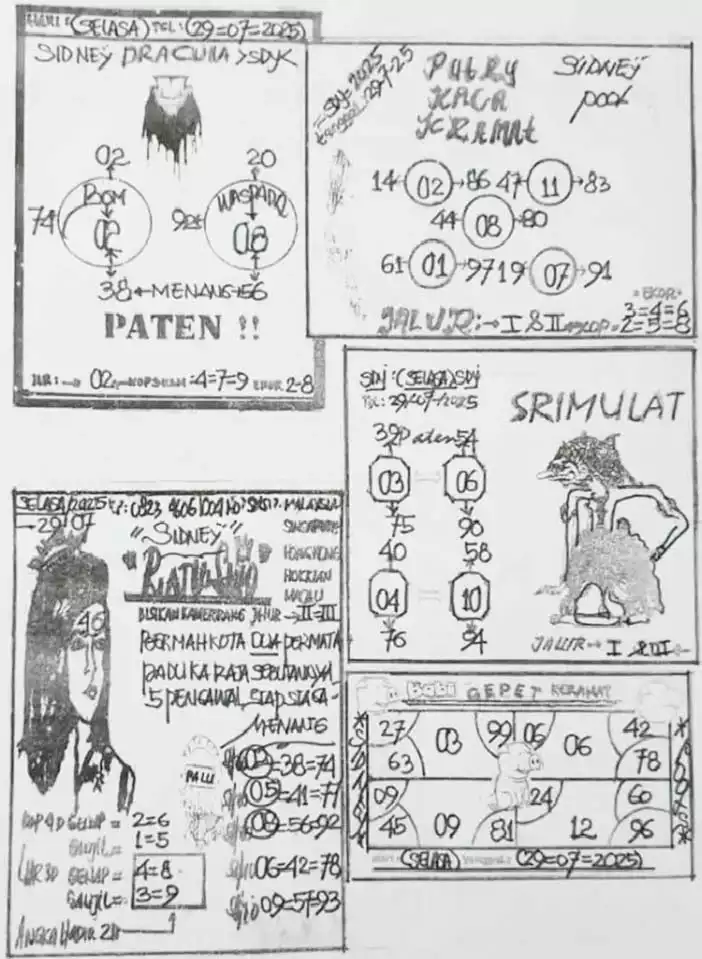 (SELASA) TGL: (29=07=2025)
SIDNEY DRACULA SDYK
02 20
BOM WASPADA
74 02 92 08
38 MENANG 56
PATEN !!
02 4=7=9 EKOR 2-8
SDY=2025
tanggal 29-7-25
PUtRY SIDNEY
KACA pool
KRAMAt
14 02 86 47 11 83
44 08 80
61 01 97 19 07 91
EKOR
3=4=6
JALUR: I & II 2=5=8
SDY: (SELASA) SDY
TGL: 29/07/2025
SRIMULAT
39 Paten 54
03 06
75 90
40 58
04 10
76 94
JALUR I & III
SELASA/2025
29/07
MALAYSIA
"SIDNEY"
SINGAPORE
HONGKONG
RATU SHIO
HOKKIAN
MACAU
46
BISIKAN JALUR II=III
BERMAHKOTA DUA PERMATA
PADUKA RAJA SEBUTANNYA
5 PENGAWAL SIAP SIAGA
MENANG
PALU
02=38=74
05=41=77
08=56=92
SHIO 06=42=78
SHIO 09=57=93
KOP 4D GENAP = 2=6
GANJIL = 1=5
GENAP = 4=8
GANJIL = 3=9
ANGKA HADIR 2D
Babi GEPET KERAMAT
27 03 99 06 06 42
63 78
09 24 60
45 09 81 12 96
(SELASA) (29=07=2025)